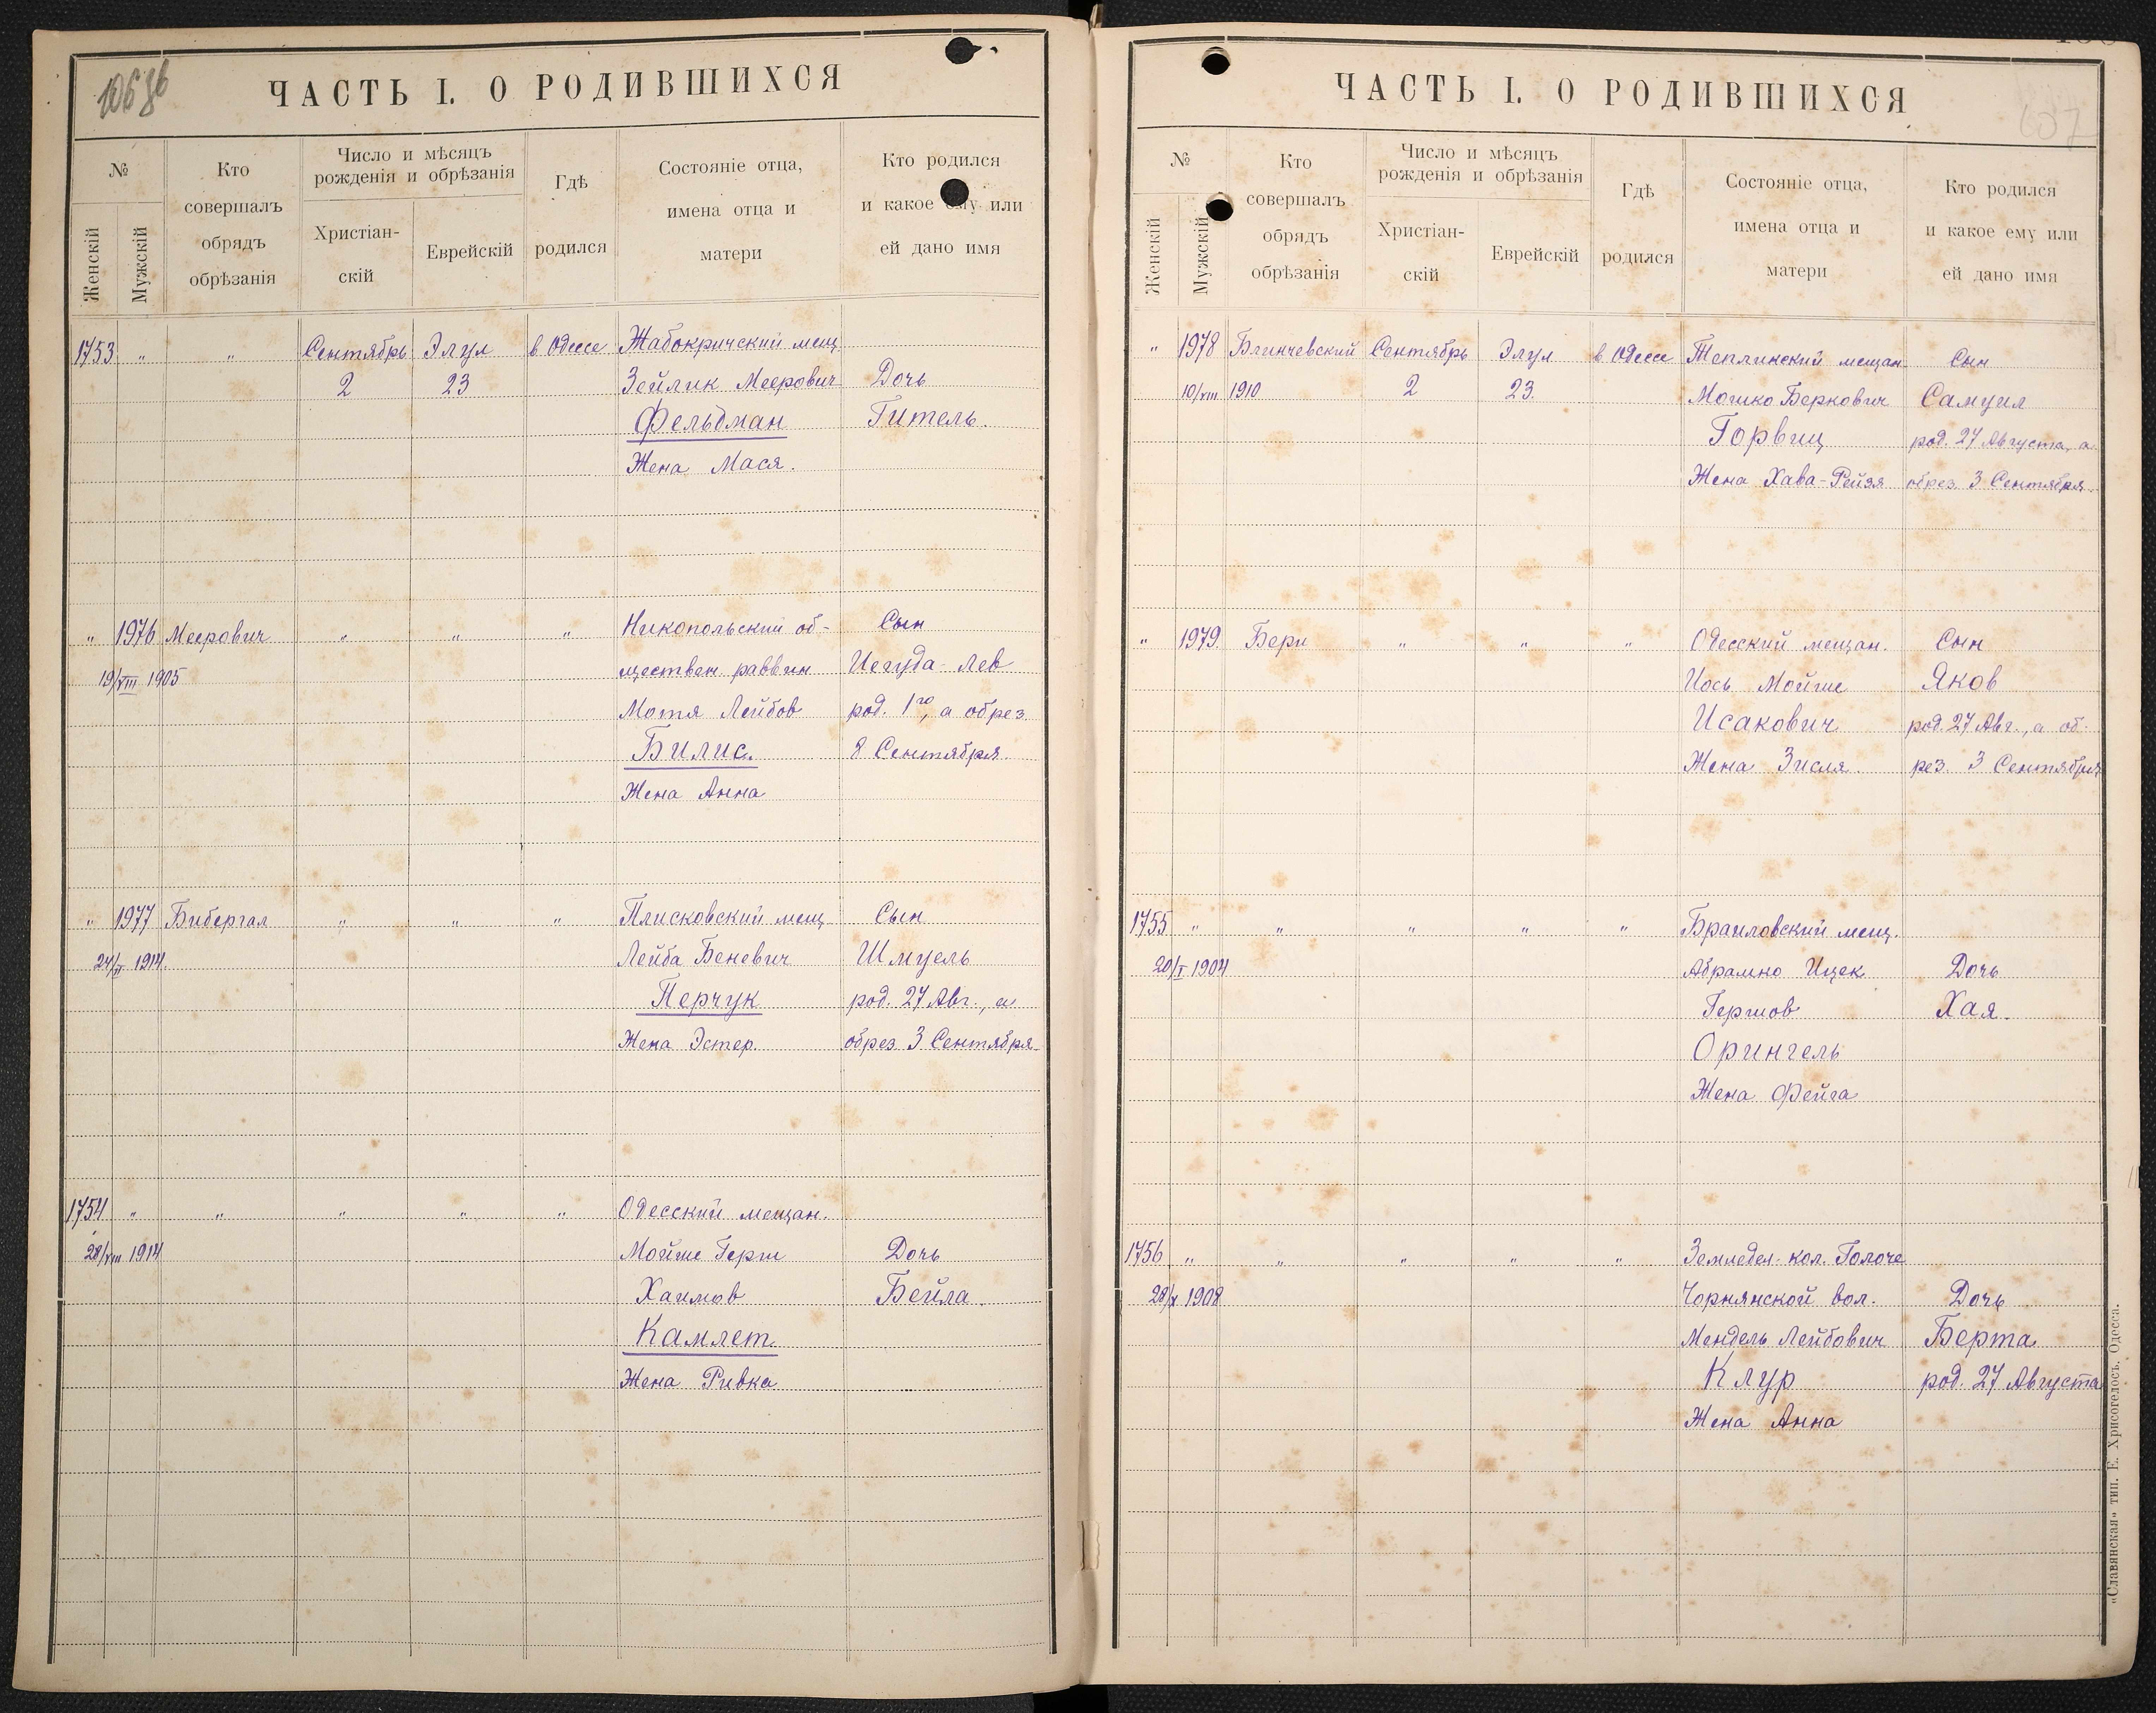 106 об
ЧАСТЬ I. О РОДИВШИХСЯ
№
Женскій
Мужскій
Кто совершалъ обрядъ обрѣзанія
Число и мѣсяцъ рожденія и обрѣзанія
Христіан-
скій
Еврейскій
Гдѣ родился
Состояніе отца, имена отца и матери
Кто родился и какое ему или ей дано имя
1753 " " Сентябрь Элул в Одессе Жабокричский мещ.
2 23 Зейлик Меерович Дочь
Фельдман Гитель.
Жена Мася.
" 1976 Меерович " " " Никопольский об- Сын
19/VIII 1905 ществен. раввин Иегуда-Лев
Мотя Лейбов род. 1го, а обрез.
Билис. 8 Сентября.
Жена Анна
" 1977 Бибергал " " " Плисковский мещ. Сын
24/II 1914. Лейба Беневич Шмуель
Перчук род. 27 Авг., а
Жена Эстер. обрез. 3 Сентября.
1754 " " " " " Одесский мещан.
28/VIII 1914 Мойше Герш Дочь
Хаимов Бейла.
Камлет.
Жена Ривка
ЧАСТЬ I. О РОДИВШИХСЯ
№
Женскій
Мужскій
Кто совершалъ обрядъ обрѣзанія
Число и мѣсяцъ рожденія и обрѣзанія
Христіан-
скій
Еврейскій
Гдѣ родился
Состояніе отца, имена отца и матери
Кто родился и какое ему или ей дано имя
" 1978 Блинчевский Сентябрь Элул в Одессе Теплинский мещан. Сын
10/VIII 1910 2 23. Мошко Беркович Самуил
Горвиц род. 27 Августа, а
Жена Хава-Рейзя обрез. 3 Сентября.
" 1979. Берн " " " Одесский мещан. Сын
Иось Мойше Яков
Исакович род. 27 Авг., а об-
Жена Зисля. рез. 3 Сентября
1755 " " " " " Браиловский мещ.
20/I 1904 Абрамно Ицек Дочь
Гершов Хая.
Орингель
Жена Фейга
1756 " " " " " Земледел. кол. Голоче
28/X 1908 Чорнянской вол. Дочь
Мендель Лейбович Берта
Клур род. 27 Августа
Жена Анна
«Славянская» тип. Е. Хрисогелосъ. Одесса.